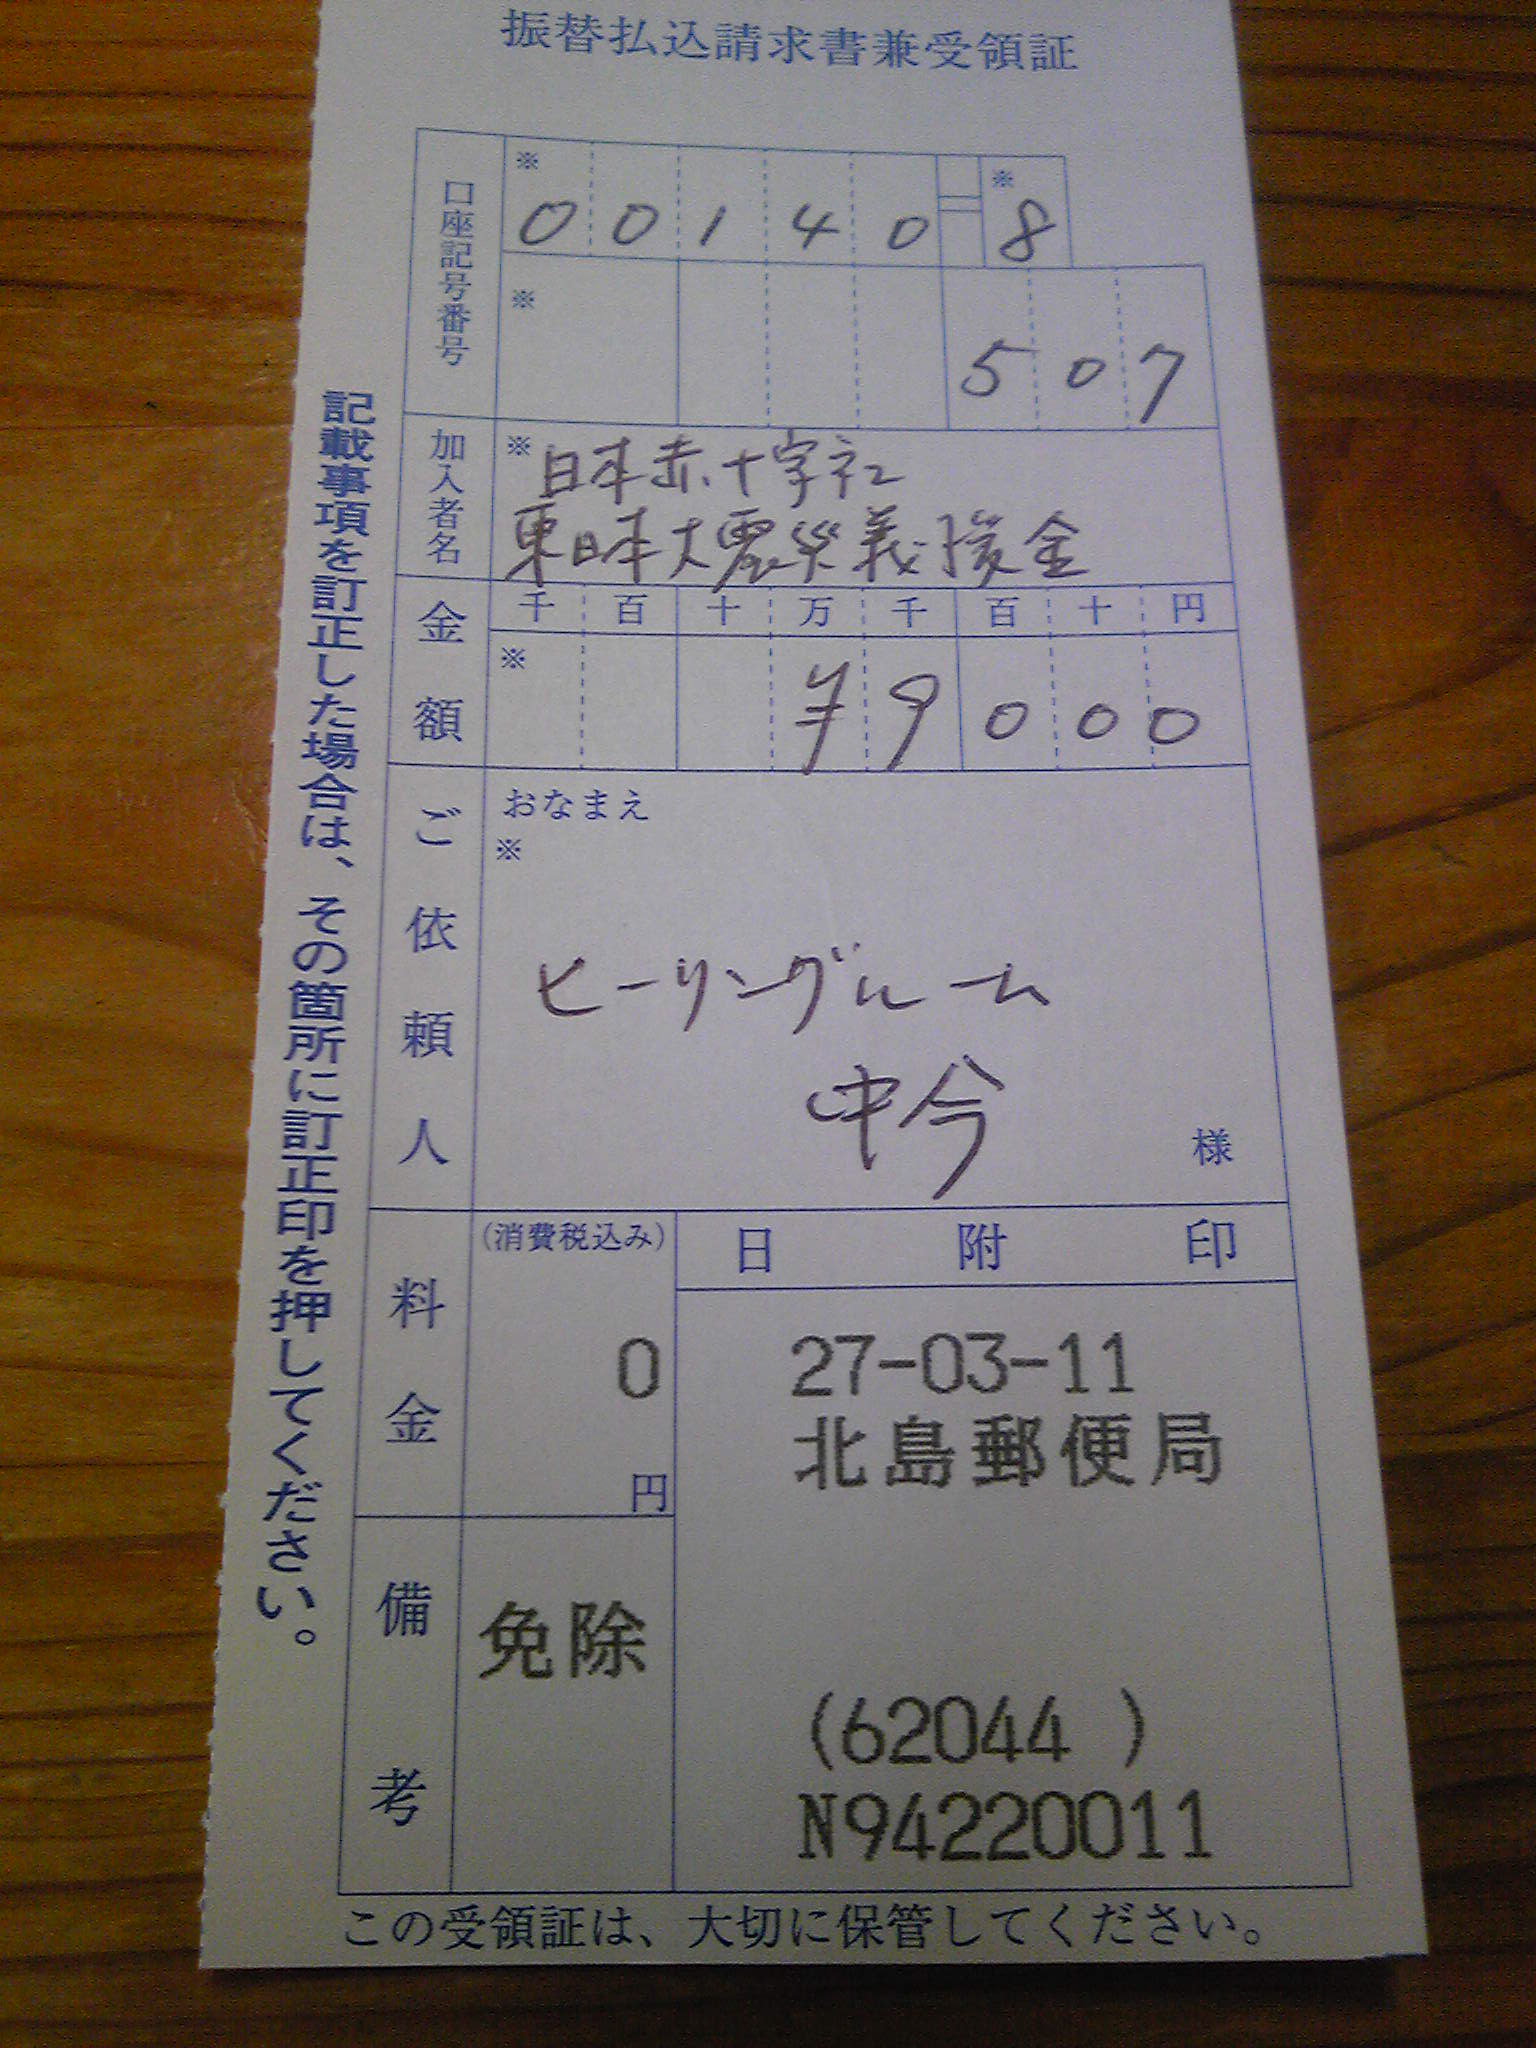 振替払込請求書兼受領証
口座記号番号
※ 00140 8
※ 507
加入者名
※日本赤十字社
東日本大震災義援金
金額
千百十万千百十円
※ ¥9000
ご依頼人
おなまえ
※
ヒーリングルーム
中今
様
料金
(消費税込み)
0
円
日附印
27-03-11
北島郵便局
備考
免除
(62044 )
N94220011
記載事項を訂正した場合は、その箇所に訂正印を押してください。
この受領証は、大切に保管してください。